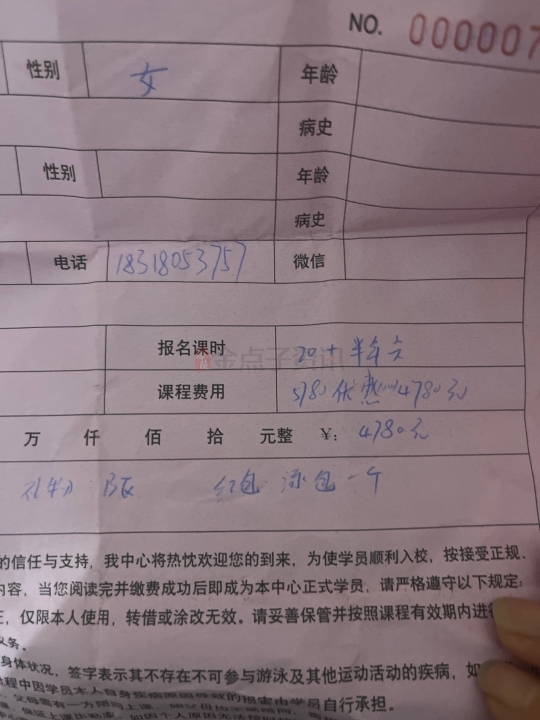 NO. 000007
性别 女 年龄
病史
性别 年龄
病史
电话 18318053757 微信
报名课时 20+半年卡
金点子资讯
课程费用 5780优惠1000 4780元
万 仟 佰 拾 元整 ¥: 4780元
红包 泳包一个
的信任与支持，我中心将热忱欢迎您的到来，为使学员顺利入校，按接受正规、
内容，当您阅读完并缴费成功后即成为本中心正式学员，请严格遵守以下规定:
仅限本人使用，转借或涂改无效。请妥善保管并按照课程有效期内进
义务。
身体状况，签字表示其不存在不可参与游泳及其他运动活动的疾病，如
程中因学员本人自身疾病原因导致的损害由学员自行承担。